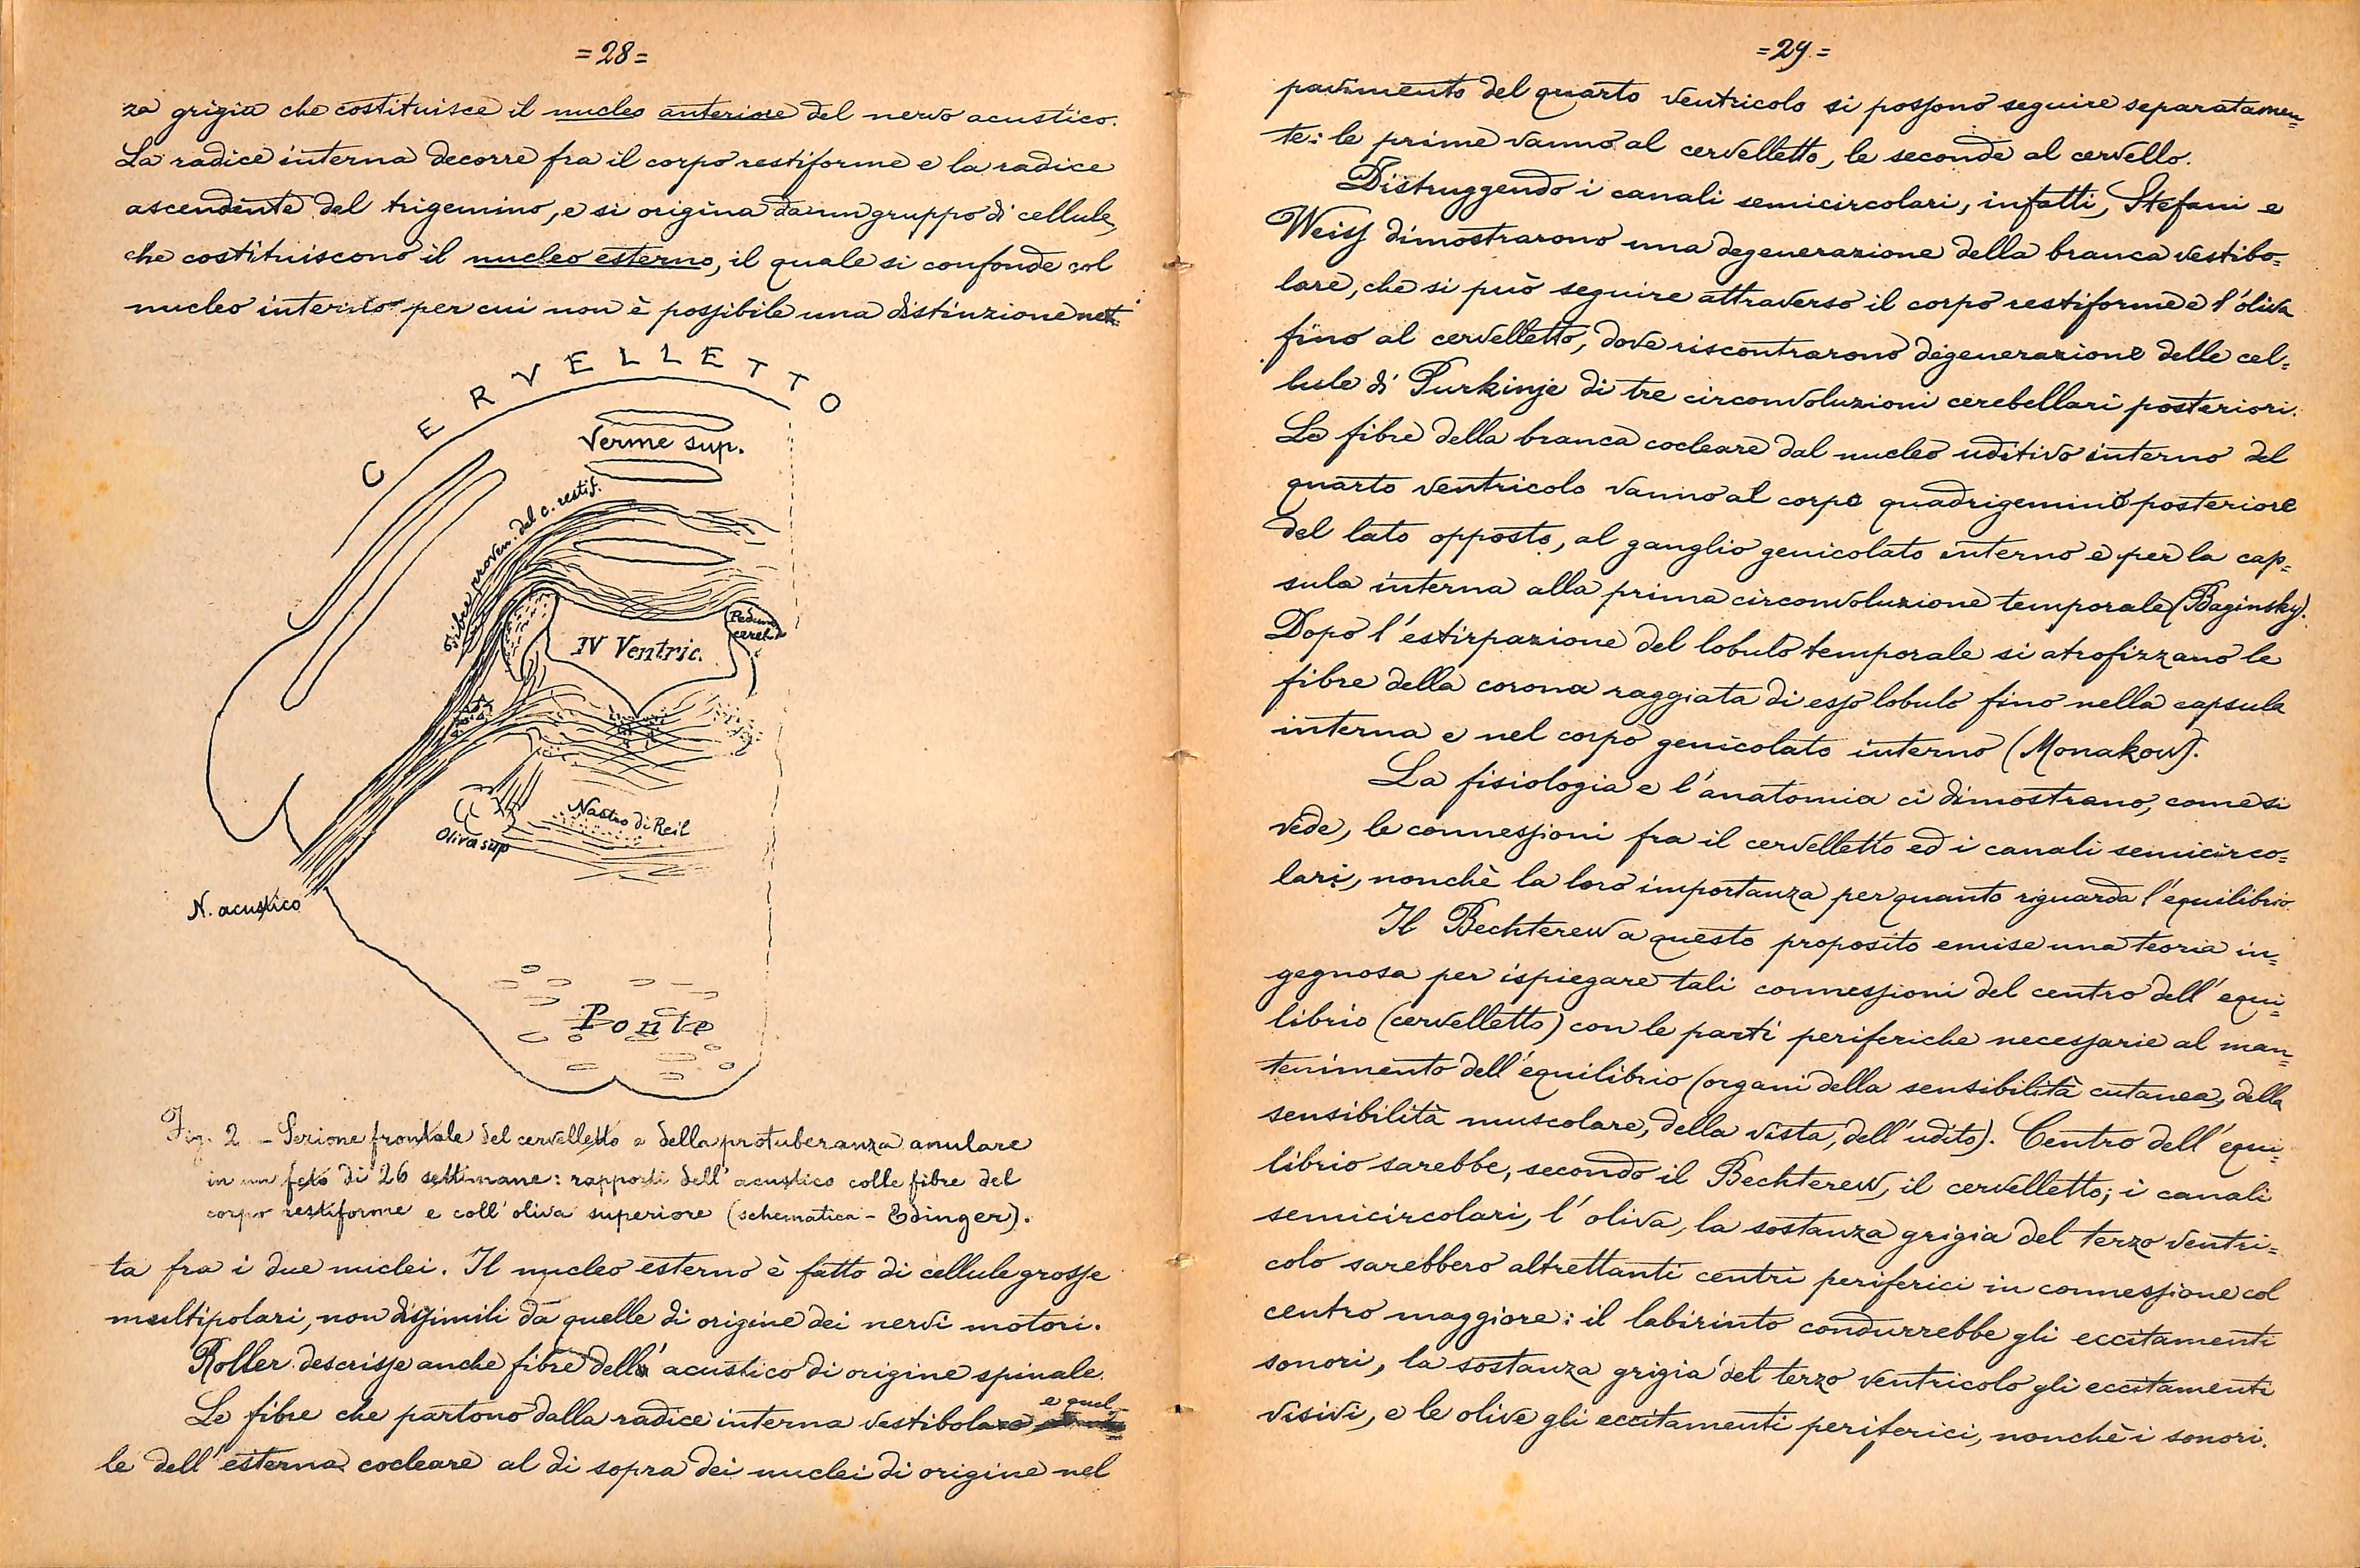 =28=
za grigia che costituisce il nucleo anteriore del nervo acustico.
La radice interna decorre fra il corpo restiforme e la radice
ascendente del trigemino, e si origina da un gruppo di cellule,
che costituiscono il nucleo esterno, il quale si confonde col
nucleo interno per cui non è possibile una distinzione net-
CERVELLETTO
Verme sup.
Fibre proven. dal c. restif.
Pedunc. cereb.
IV Ventric.
Nastro di Reil
Oliva sup
N. acustico
Ponte
Fig. 2 - Sezione frontale del cervelletto e della protuberanza anulare
in un feto di 26 settimane: rapporti dell'acustico colle fibre del
corpo restiforme e coll'oliva superiore (schematica - Edinger).
ta fra i due nuclei. Il nucleo esterno è fatto di cellule grosse
multipolari, non dissimili da quelle di origine dei nervi motori.
Roller descrisse anche fibre dell'acustico di origine spinale.
Le fibre che partono dalla radice interna vestibolare e quel-
le dell'esterna cocleare al di sopra dei nuclei di origine nel
=29=
pavimento del quarto ventricolo si possono seguire separatamen=
te: le prime vanno al cervelletto, le seconde al cervello.
Distruggendo i canali semicircolari, infatti, Stefani e
Weiss dimostrarono una degenerazione della branca vestibo=
lare, che si può seguire attraverso il corpo restiforme e l'oliva
fino al cervelletto, dove riscontrarono degenerazione delle cel=
lule di Purkinje di tre circonvoluzioni cerebellari posteriori.
Le fibre della branca cocleare dal nucleo uditivo interno del
quarto ventricolo vanno al corpo quadrigemino posteriore
del lato opposto, al ganglio genicolato interno e per la cap=
sula interna alla prima circonvoluzione temporale (Baginsky).
Dopo l'estirpazione del lobulo temporale si atrofizzano le
fibre della corona raggiata di esso lobulo fino nella capsula
interna e nel corpo genicolato interno (Monakow).
La fisiologia e l'anatomia ci dimostrano, come si
vede, le connessioni fra il cervelletto ed i canali semicirco=
lari, nonchè la loro importanza per quanto riguarda l'equilibrio.
Il Bechterew a questo proposito emise una teoria in=
gegnosa per ispiegare tali connessioni del centro dell'equi=
librio (cervelletto) con le parti periferiche necessarie al man=
tenimento dell'equilibrio (organi della sensibilità cutanea, della
sensibilità muscolare, della vista, dell'udito). Centro dell'equi=
librio sarebbe, secondo il Bechterew, il cervelletto; i canali
semicircolari, l'oliva, la sostanza grigia del terzo ventri=
colo sarebbero altrettanti centri periferici in connessione col
centro maggiore: il labirinto condurrebbe gli eccitamenti
sonori, la sostanza grigia del terzo ventricolo gli eccitamenti
visivi, e le olive gli eccitamenti periferici, nonchè i sonori.